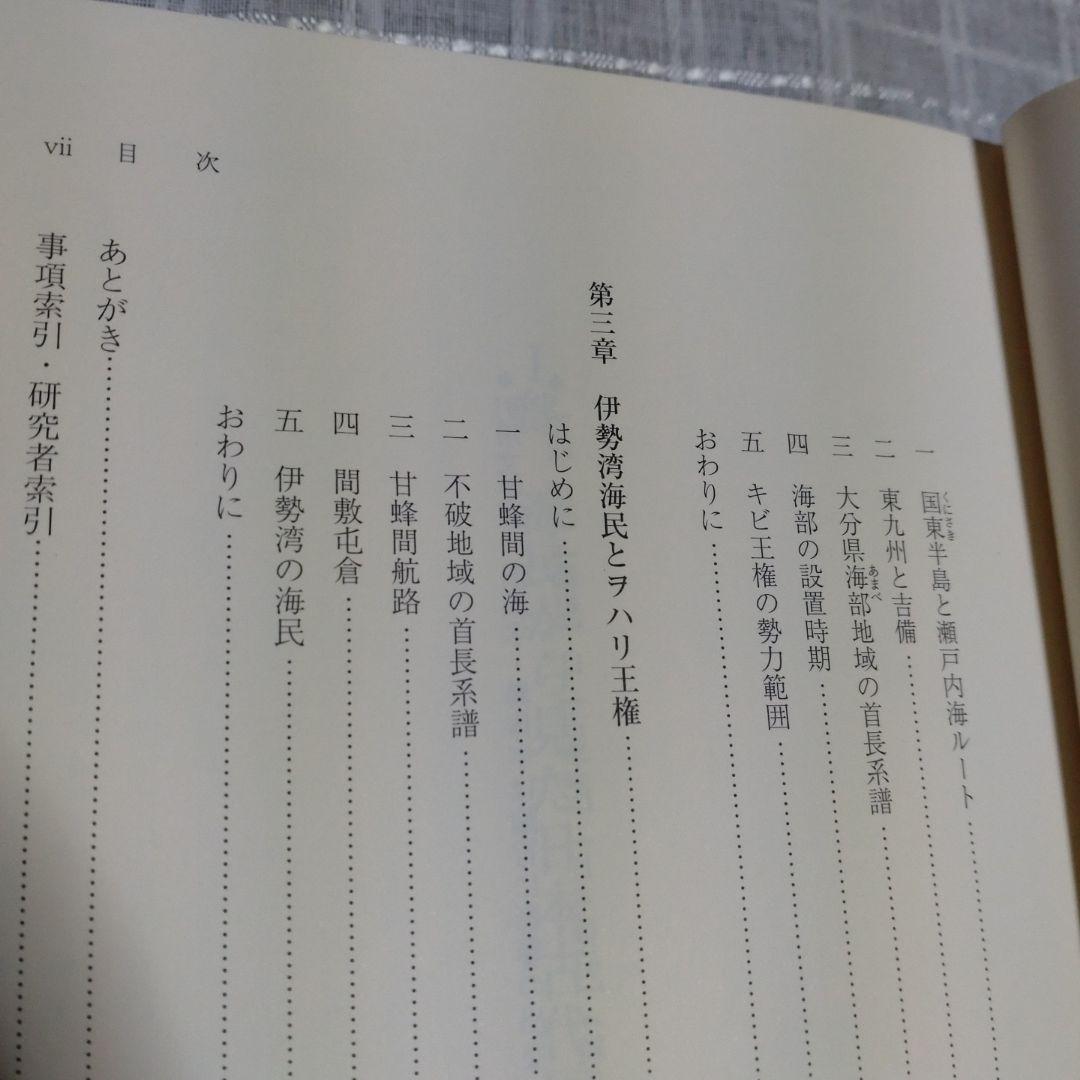 vii 目次
一 国東半島と瀬戸内海ルート……………
くにさき
二 東九州と吉備……………
三 大分県海部地域の首長系譜……………
あまべ
四 海部の設置時期……………
五 キビ王権の勢力範囲……………
おわりに……………
第三章 伊勢湾海民とヲハリ王権……………
はじめに……………
一 甘蜂間の海……………
二 不破地域の首長系譜……………
三 甘蜂間航路……………
四 間敷屯倉……………
五 伊勢湾の海民……………
おわりに……………
あとがき……………
事項索引・研究者索引……………